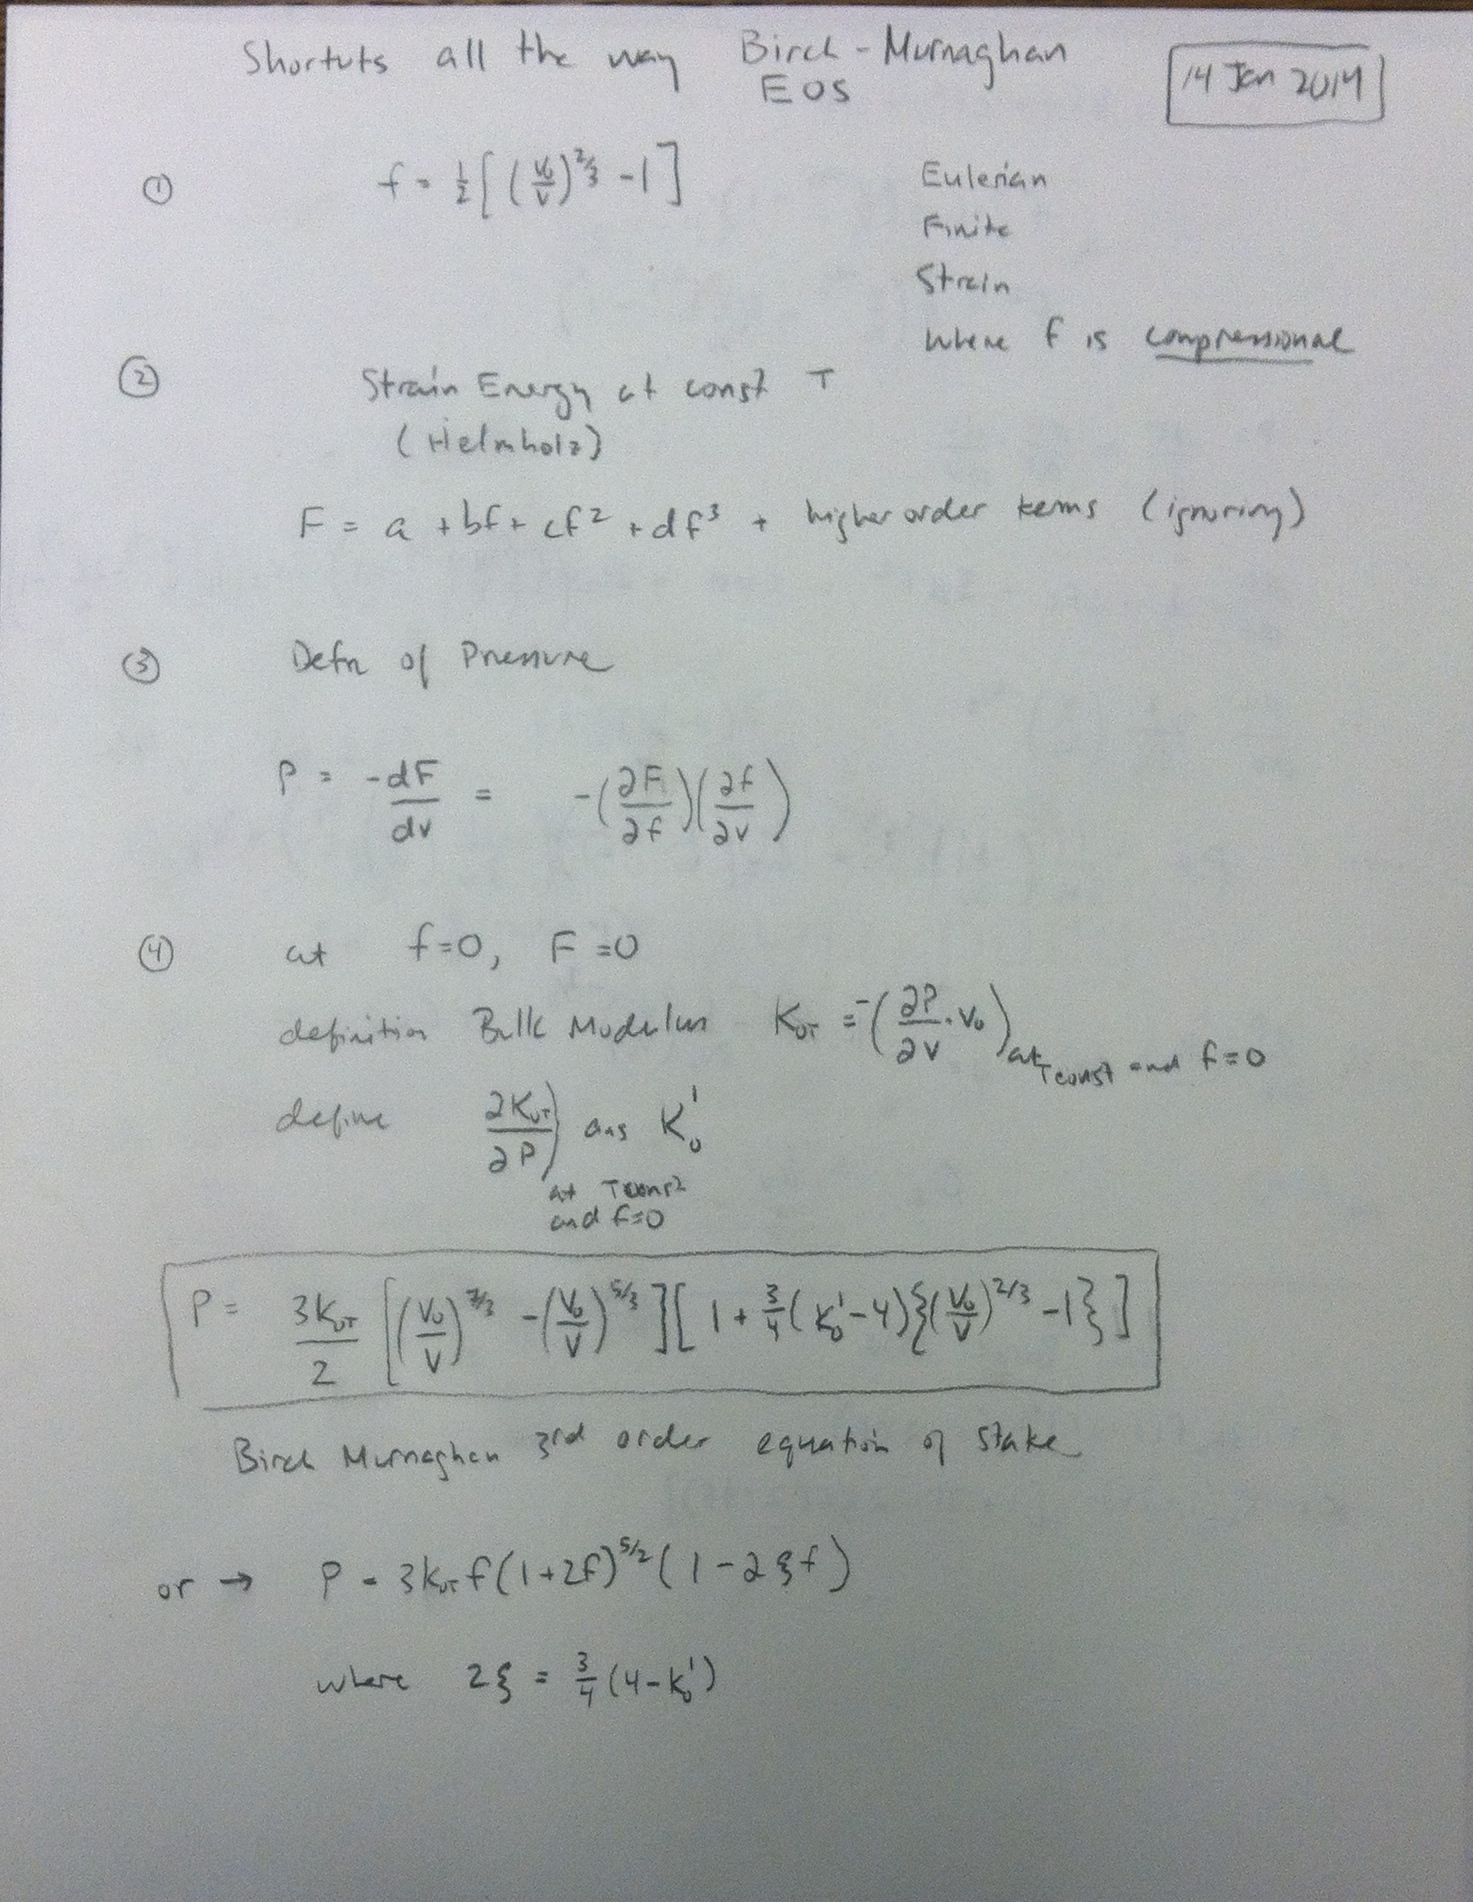 Shortuts all the way Birch-Murnaghan
EOS
14 Jan 2014
① f = ½[(V₀/V)^2/3 - 1]
Eulerian
Finite
Strain
where f is compressional
② Strain Energy at const T
(Helmholz)
F = a + bf + cf² + df³ + higher order terms (ignoring)
③ Defn of Pressure
P = -dF/dv = -(∂F/∂f)(∂f/∂v)
④ at f=0, F=0
definition Bulk Modulus K₀T = -(∂P/∂v · V₀) at T const and f=0
define ∂K₀T/∂P) as K₀'
at T const
and f=0
P = 3K₀T/2 [(V₀/V)^7/3 - (V₀/V)^5/3][1 + 3/4(K₀'-4){(V₀/V)^2/3 - 1}]
Birch Murnaghan 3rd order equation of state
or → P = 3K₀T f(1+2f)^5/2 (1 - 2ξf)
where 2ξ = 3/4(4-K₀')